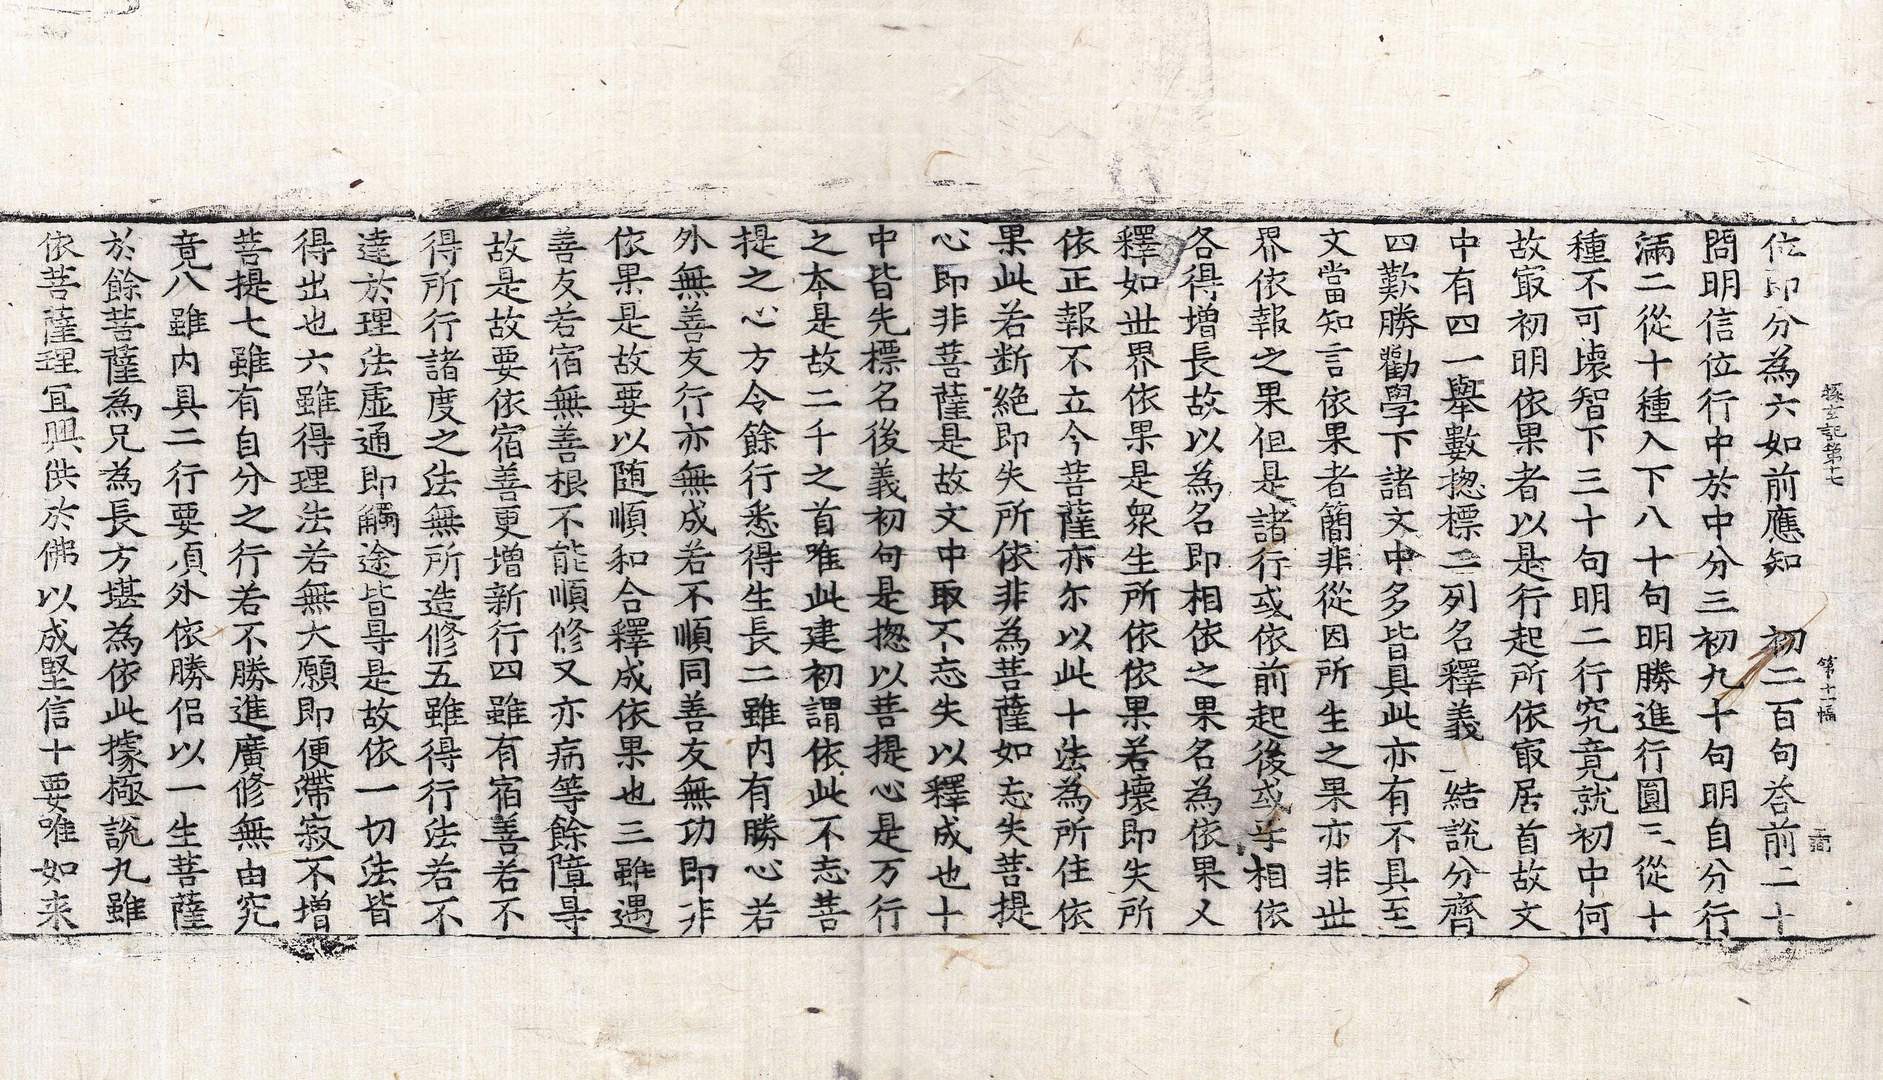 探玄記第十七 第十一幅 簡
位即分為六如前應知 初二百句荅前二十
問明信位行中於中分三初九十句明自分行
滿二從十種入下八十句明勝進行圓三從十
種不可壞智下三十句明二行究竟就初中何
故㝡初明依果者以是行起所依㝡居首故文
中有四一舉數揔標二列名釋義 結說分齊
四歎勝勸學下諸文中多皆具此亦有不具至
文當知言依果者簡非從因所生之果亦非世
界依報之果但是諸行或依前起後或 相依
各得增長故以為名即相依之果名為依果又
釋如世界依果是衆生所依依果若壞即失所
依正報不立今菩薩亦尓以此十法為所住依
果此若断絶即失所依非為菩薩如忘失菩提
心即非菩薩是故文中取不忘失以釋成也十
中皆先標名後義初句是揔以菩提心是万行
之本是故二千之首唯此建初謂依此不忘菩
提之心方令餘行悉得生長二雖内有勝心若
外無善友行亦無成若不順同善友無功即非
依果是故要以随順和合釋成依果也三雖遇
善友若宿無善根不能順修又亦病等餘障㝵
故是故要依宿善更增新行四雖有宿善若不
得所行諸度之法無所造修五雖得行法若不
達於理法虛通即觸途皆㝵是故依一切法皆
得出也六雖得理法若無大願即便滯寂不增
菩提七雖有自分之行若不勝進廣修無由究
竟八雖内具二行要湏外依勝侣以一生菩薩
於餘菩薩為兄為長方堪為依此據極說九雖
依菩薩理冝興供於佛以成堅信十要唯如来